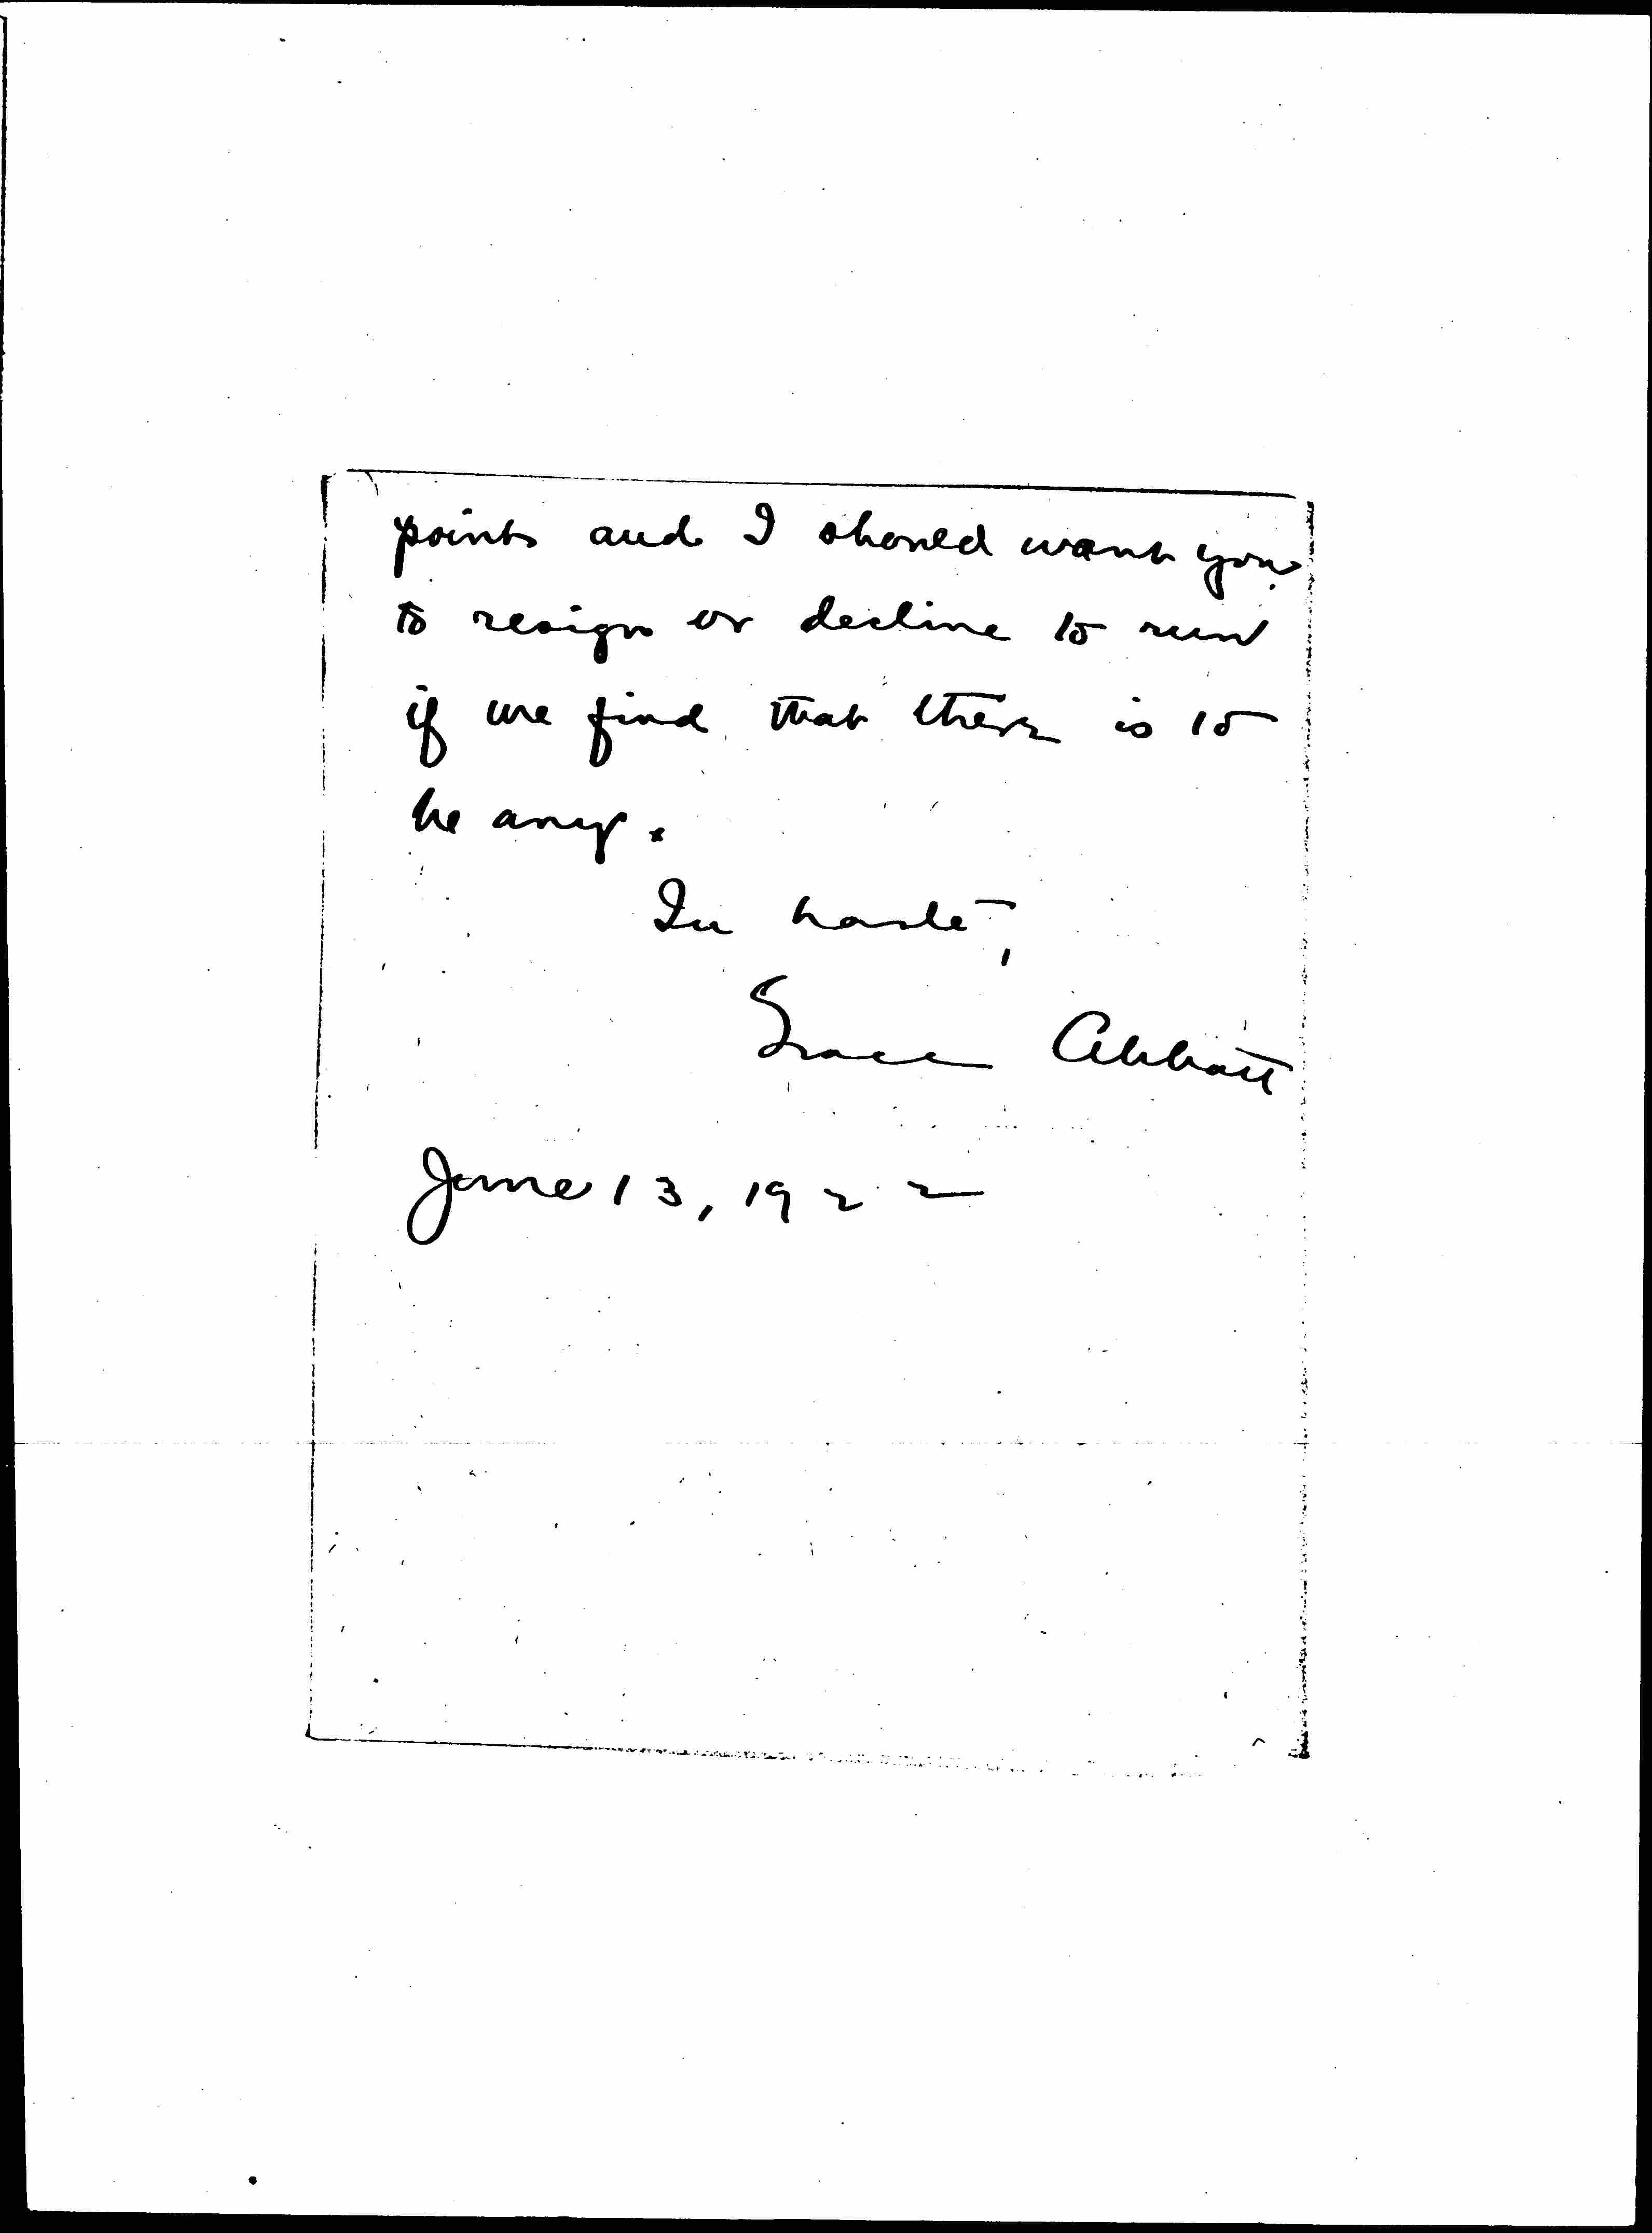 points and I should want you
to resign or decline to run
if we find that there is to
be any.
In haste,
Grace Abbott
June 13, 1922